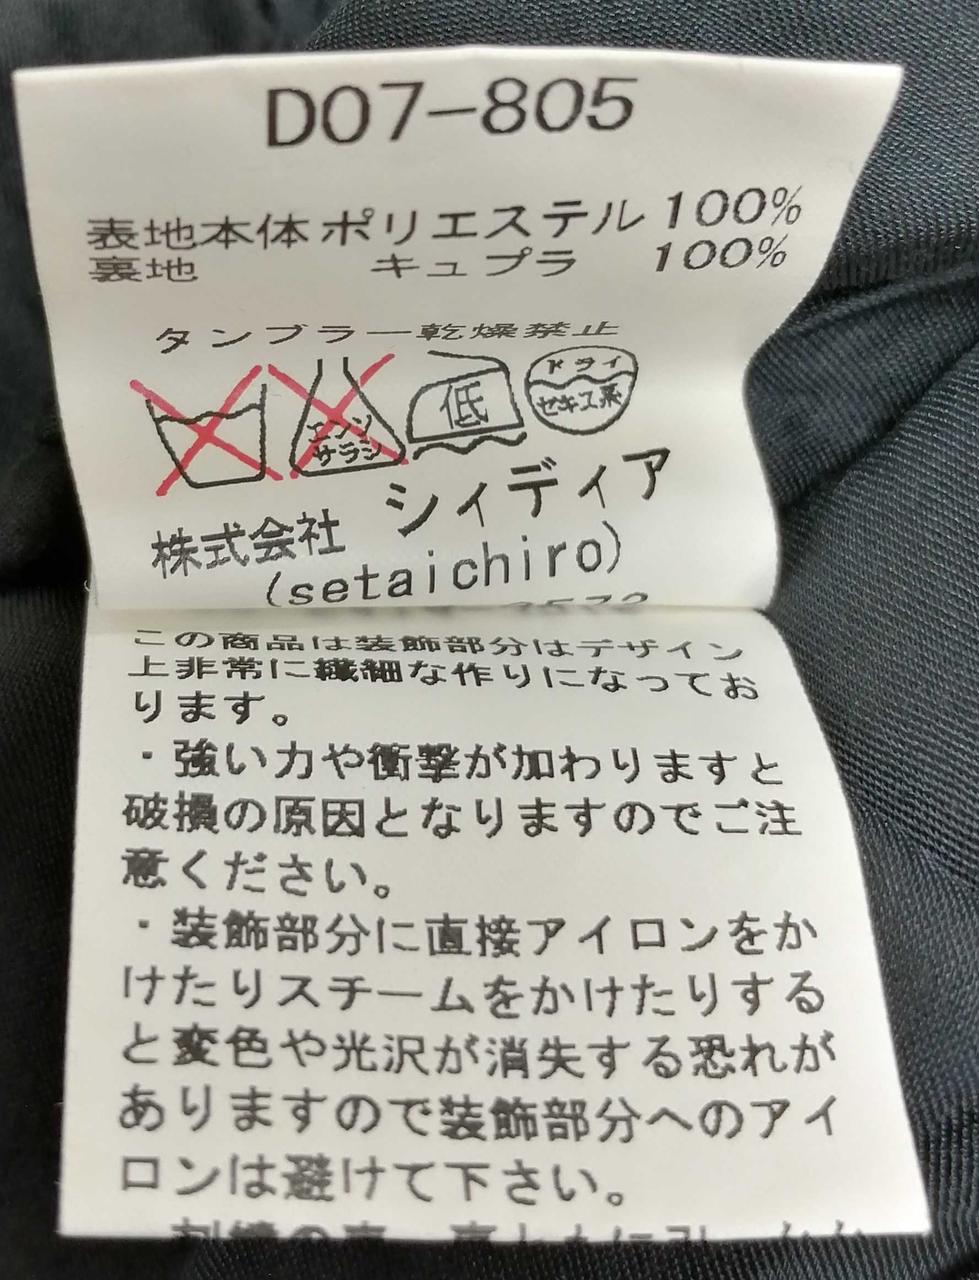 D07-805
表地本体 ポリエステル 100%
裏地 キュプラ 100%
タンブラー乾燥禁止
エンソ
サラシ
低
ドライ
セキユ系
株式会社 シィディア
(setaichiro)
この商品は装飾部分はデザイン
上非常に繊細な作りになってお
ります。
・強い力や衝撃が加わりますと
破損の原因となりますのでご注
意ください。
・装飾部分に直接アイロンをか
けたりスチームをかけたりする
と変色や光沢が消失する恐れが
ありますので装飾部分へのアイ
ロンは避けて下さい。